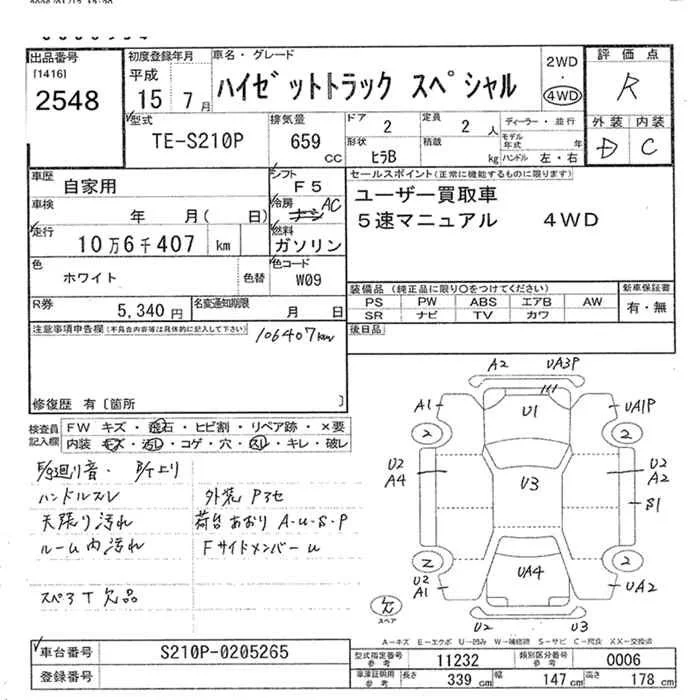 出品番号
[1416]
2548
初度登録年月
平成
15 年 7 月
車名・グレード
ハイゼットトラック スペシャル
2WD
・
4WD
評価点
R
外装 内装
D C
型式
TE-S210P
排気量
659 CC
ドア 2
定員 2 人
形状 ヒラB
積載 kg
ディーラー・並行
モデル年式 年
ハンドル 左・右
車歴 自家用
シフト F5
セールスポイント(正常に機能するものに限ります)
ユーザー買取車
5速マニュアル 4WD
車検 年 月( 日)
冷房 ナシ AC
走行 10万6千407 km
燃料 ガソリン
色 ホワイト 色替
色コード W09
装備品 (純正品に限り○をつけてください)
PS PW ABS エアB AW
SR ナビ TV カワ
新車保証書
有・無
R券 5,340 円
名変通知期限 月 日
後日品
注意事項申告欄(不具合内容等は具体的に記入して下さい)
106407km
修復歴 有[箇所 ]
検査員記入欄
FW キズ・飛石・ヒビ割・リペア跡・×要
内装 キズ・汚レ・コゲ・穴・スレ・キレ・破レ
ハンドルスレ
天張り汚れ
ルーム内汚れ
スペアT欠品
外装 Pアセ
荷台あおり A-U-S-P
Fサイドメンバーu
A2 UA3P
A1 U1 UA1P
2 2
U2 A4
U3
U2 A2
S1
2 2
U2 A1
UA4
UA2
欠
スペア
U2 U3
A−キズ E−エクボ U−凹み W−補修跡 S−サビ C−腐食 XX−交換済
車台番号 S210P-0205265
登録番号
型式指定番号 参考 11232
類別区分番号 参考 0006
車庫証明用 参考
長さ 339 cm
幅 147 cm
高さ 178 cm